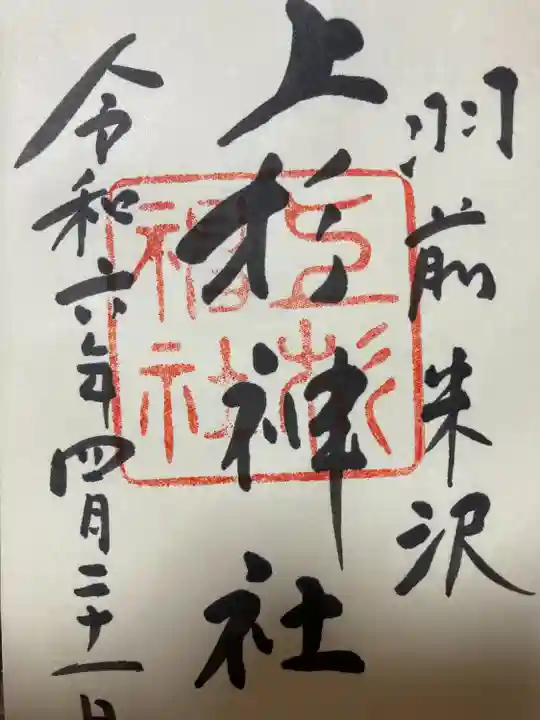 羽前米沢
上杉神社
上杉神社
令和六年四月二十一日